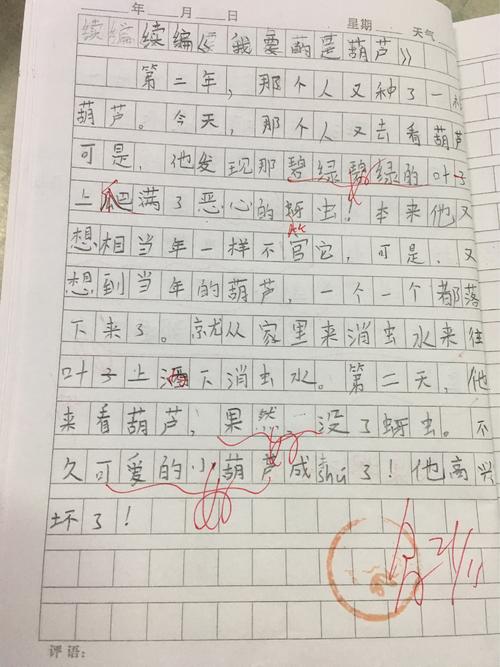 年 月 日 星期 天气
续编续编《我要的是葫芦》
第二年，那个人又种了一
葫芦。今天，那个人又去看葫芦
可是，他发现那碧绿碧绿的叶子
上爬满了恶心的蚜虫！本来他又
想相当年一样不管它，可是，又
想到当年的葫芦，一个一个都落
下来了。就从家里来消虫水来往
叶子上洒下消虫水。第二天，他
来看葫芦，果然，没了蚜虫。不
久可爱的小葫芦成shú了！他高兴
坏了！
评语：